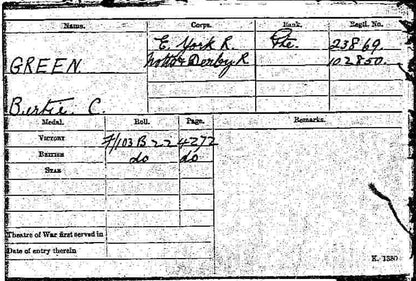 Name. Corps. Rank. Regtl. No.
E. York R. Pte. 23869.
GREEN Notts & Derby R 102850.
Bertie. C.
Medal. Roll. Page. Remarks.
VICTORY F/103 B 22 4272
BRITISH do do
STAR
Theatre of War first served in
Date of entry therein
K. 1380